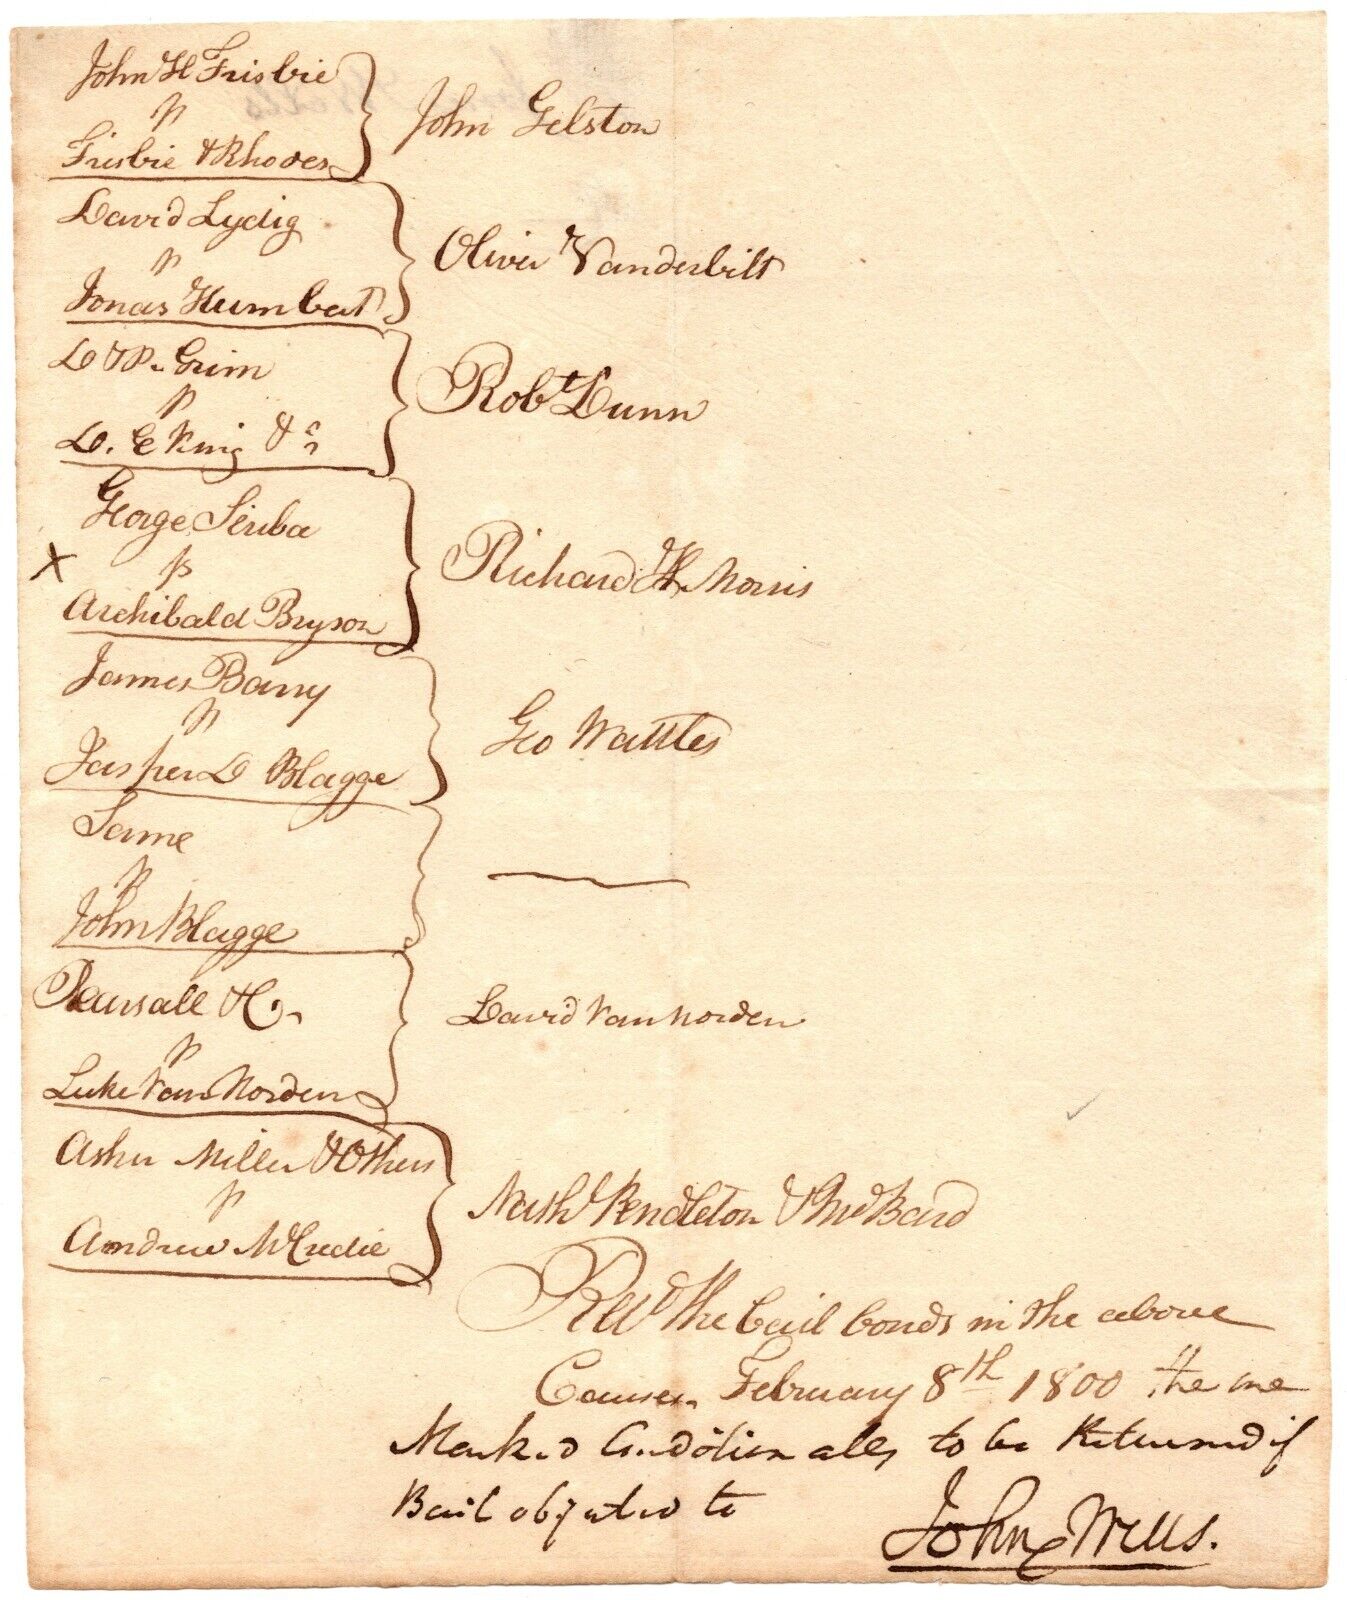 John H Frisbie
vs
Frisbie & Rhodes
John Gelston
David Lydig
vs
Jonas Humbert
Oliver Vanderbilt
D & P. Grim
vs
D. C King & Co
Robt Dunn
George Scriba
X vs
Archibald Bryson
Richard H. Morris
James Barry
vs
Jasper D Blagge
Geo Wattles
Same
vs
John Blagge
Pearsall & Co.
vs
Luke Van Norden
David Van Norden
Asher Miller & Others
vs
Andrew McCredie
Nathl Pendleton & Bard
Recd the bail bonds in the above
Causes. February 8th 1800 the one
Marked Conditionally to be Returned if
Bail objected to
John Wells.